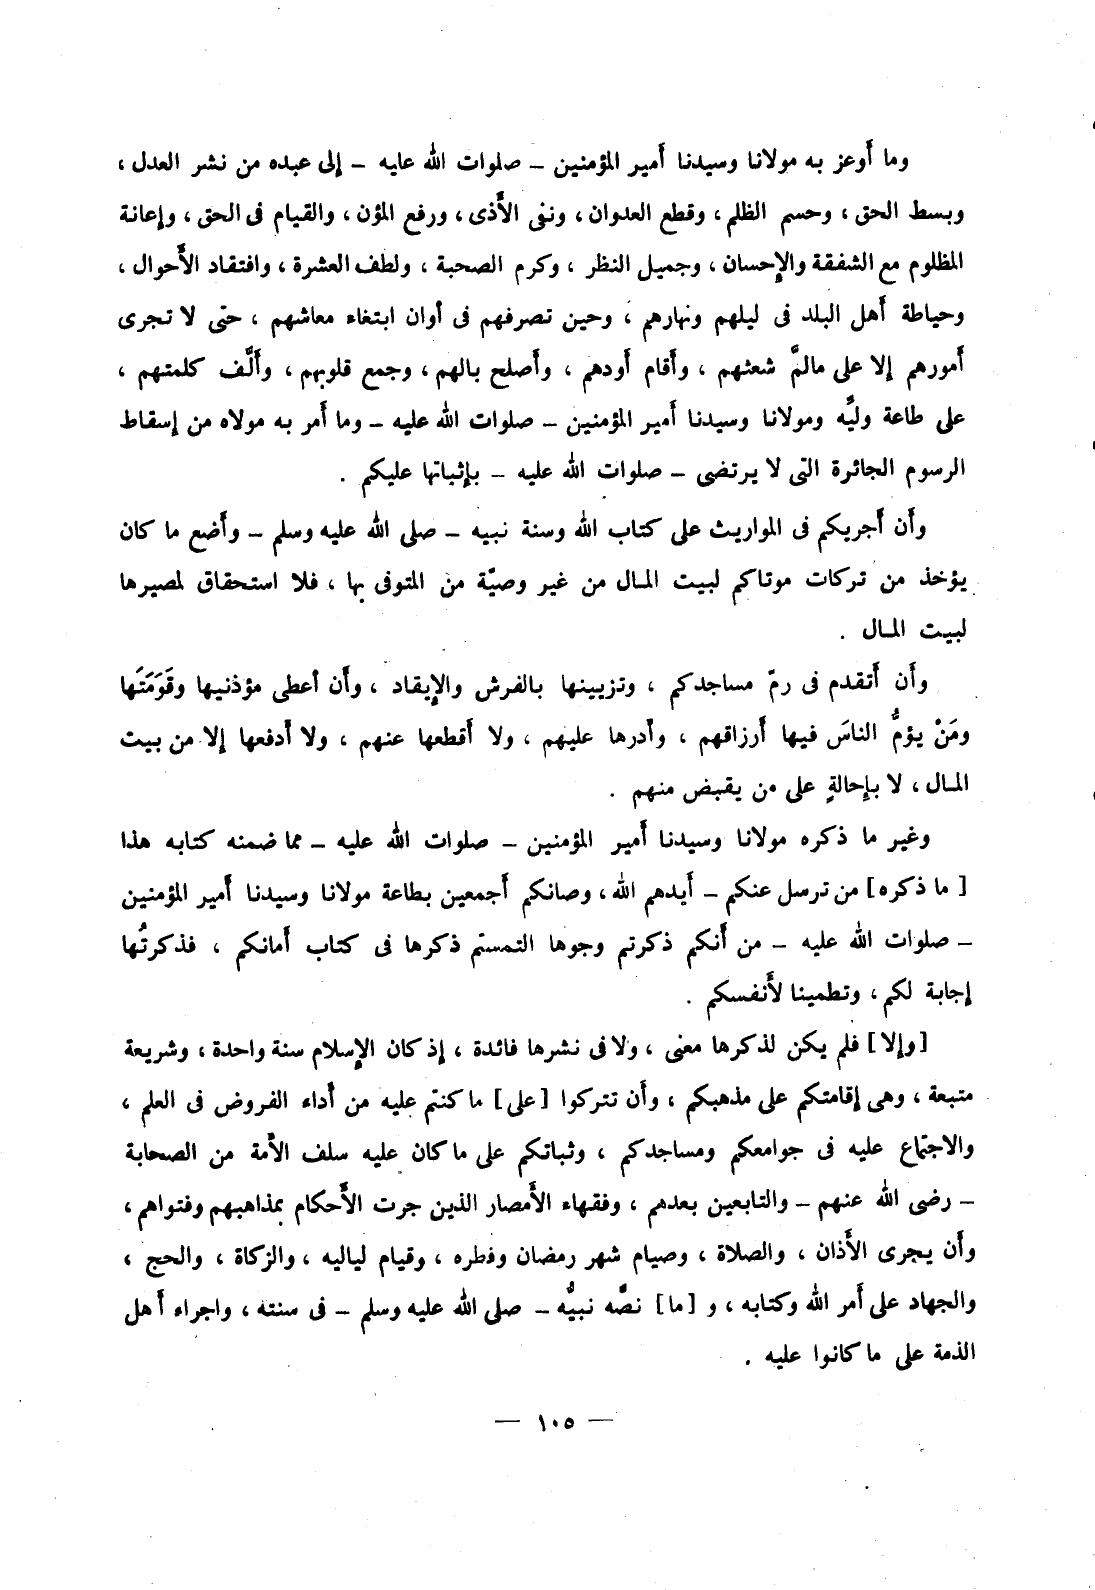 وما أَوعز به مولانا وسيدنا أَمير المؤمنين – صلوات الله عايه – إلى عبده من نشر العدل ،
وبسط الحق ، وحسم الظلم ، وقطع العدوان ، ونفى الأَذى ، ورفع المؤن ، والقيام فى الحق ، وإعانة
المظلوم مع الشفقة والإحسان ، وجميل النظر ، وكرم الصحبة ، ولطف العشرة ، وافتقاد الأَحوال ،
وحياطة أَهل البلد فى ليلهم ونهارهم ، وحين تصرفهم فى أوان ابتغاء معاشهم ، حتى لا تجرى
أَمورهم إلا على مالمَّ شعثهم ، وأَقام أَودهم ، وأَصلح بالهم ، وجمع قلوبهم ، وأَلَّف كلمتهم ،
على طاعة وليَّه ومولانا وسيدنا أَمير المؤمنين – صلوات الله عليه – وما أَمر به مولاه من إسقاط
الرسوم الجائرة التى لا يرتضى – صلوات الله عليه – بإثباتها عليكم .
وأَن أَجريكم فى المواريث على كتاب الله وسنة نبيه – صلى الله عليه وسلم – وأَضع ما كان
يؤخذ من تركات موتاكم لبيت المال من غير وصيّة من المتوفى بها ، فلا استحقاق لمصيرها
لبيت المال .
وأَن أَتقدم فى رمّ مساجدكم ، وتزيينها بالفرش والإيقاد ، وأَن أعطى مؤذنيها وقَوَمَتَها
ومَنْ يؤمُّ الناسَ فيها أَرزاقهم ، وأدرها عليهم ، ولا أَقطعها عنهم ، ولا أَدفعها إلا من بيت
المال ، لا بإحالةٍ على من يقبض منهم .
وغير ما ذكره مولانا وسيدنا أَمير المؤمنين – صلوات الله عليه – مما ضمنه كتابه هذا
[ ما ذكره ] من ترسل عنكم – أَيدهم الله ، وصانكم أَجمعين بطاعة مولانا وسيدنا أَمير المؤمنين
– صلوات الله عليه – من أَنكم ذكرتم وجوها التمستم ذكرها فى كتاب أَمانكم ، فذكرتُها
إجابة لكم ، وتطمينا لأَنفسكم .
[ وإلا ] فلم يكن لذكرها معنى ، ولا فى نشرها فائدة ، إذ كان الإسلام سنة واحدة ، وشريعة
متبعة ، وهى إقامتكم على مذهبكم ، وأَن تتركوا [ على ] ما كنتم عليه من أَداء الفروض فى العلم ،
والاجتماع عليه فى جوامعكم ومساجدكم ، وثباتكم على ما كان عليه سلف الأَمة من الصحابة
– رضى الله عنهم – والتابعين بعدهم ، وفقهاء الأَمصار الذين جرت الأَحكام بمذاهبهم وفتواهم ،
وأَن يجرى الأَذان ، والصلاة ، وصيام شهر رمضان وفطره ، وقيام لياليه ، والزكاة ، والحج ،
والجهاد على أَمر الله وكتابه ، و [ ما ] نصَّه نبيُّه – صلى الله عليه وسلم – فى سنته ، واجراء أَهل
الذمة على ما كانوا عليه .
— ١٠٥ —